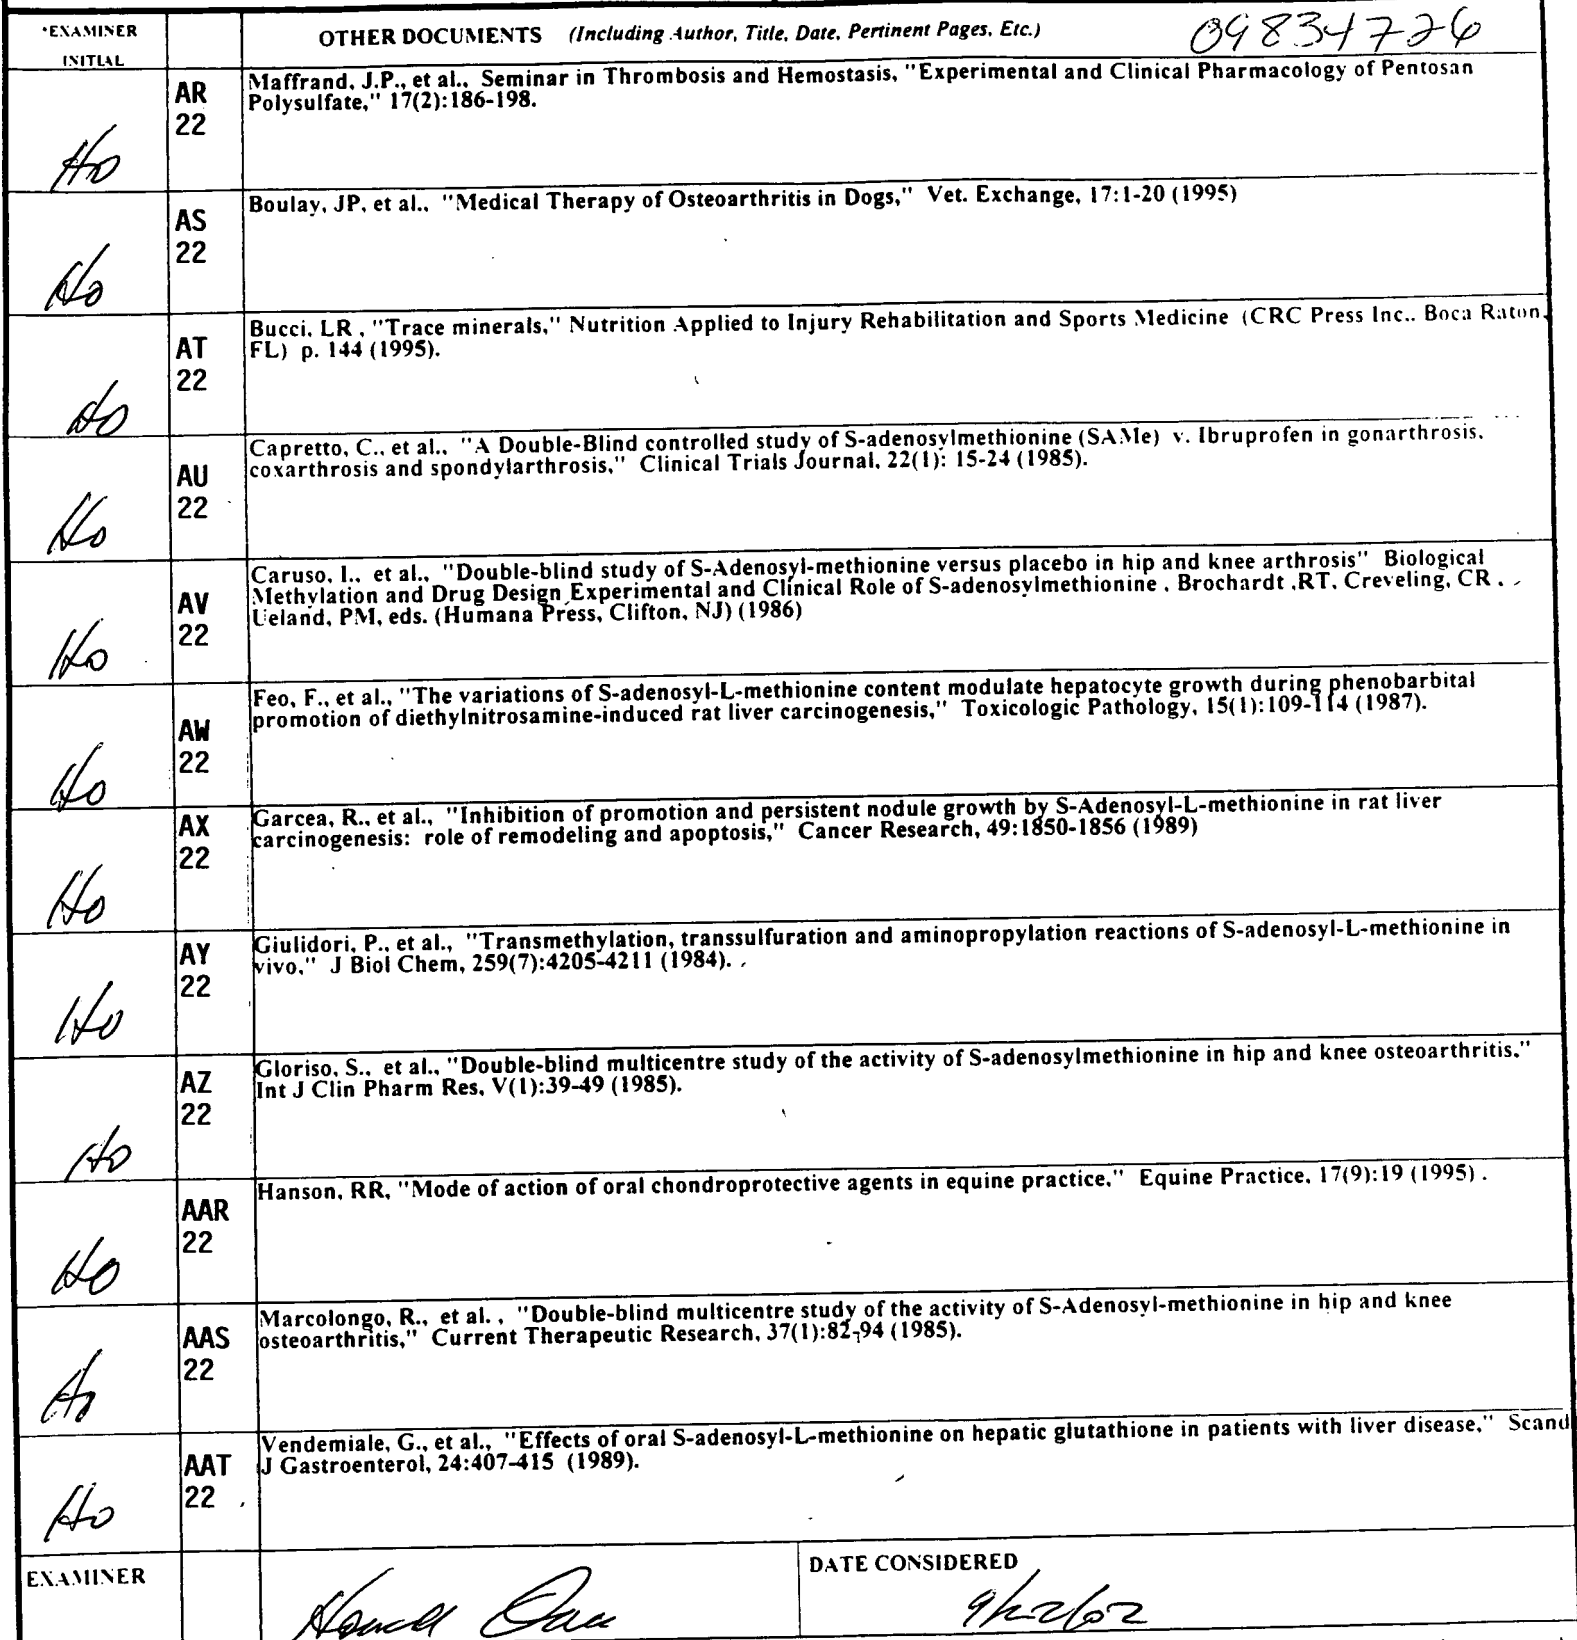 *EXAMINER INITIAL
OTHER DOCUMENTS (Including Author, Title, Date, Pertinent Pages, Etc.)
09834726
AR 22
Maffrand, J.P., et al., Seminar in Thrombosis and Hemostasis, "Experimental and Clinical Pharmacology of Pentosan
Polysulfate," 17(2):186-198.
HO
AS 22
Boulay, JP, et al., "Medical Therapy of Osteoarthritis in Dogs," Vet. Exchange, 17:1-20 (1995)
HO
AT 22
Bucci, LR , "Trace minerals," Nutrition Applied to Injury Rehabilitation and Sports Medicine (CRC Press Inc.. Boca Raton,
FL) p. 144 (1995).
HO
AU 22
Capretto, C., et al., "A Double-Blind controlled study of S-adenosylmethionine (SAMe) v. Ibruprofen in gonarthrosis,
coxarthrosis and spondylarthrosis," Clinical Trials Journal, 22(1): 15-24 (1985).
HO
AV 22
Caruso, I., et al., "Double-blind study of S-Adenosyl-methionine versus placebo in hip and knee arthrosis" Biological
Methylation and Drug Design Experimental and Clinical Role of S-adenosylmethionine , Brochardt ,RT, Creveling, CR . ,
Ueland, PM, eds. (Humana Press, Clifton, NJ) (1986)
HO
AW 22
Feo, F., et al., "The variations of S-adenosyl-L-methionine content modulate hepatocyte growth during phenobarbital
promotion of diethylnitrosamine-induced rat liver carcinogenesis," Toxicologic Pathology, 15(1):109-114 (1987).
HO
AX 22
Garcea, R., et al., "Inhibition of promotion and persistent nodule growth by S-Adenosyl-L-methionine in rat liver
carcinogenesis: role of remodeling and apoptosis," Cancer Research, 49:1850-1856 (1989)
HO
AY 22
Giulidori, P., et al., "Transmethylation, transsulfuration and aminopropylation reactions of S-adenosyl-L-methionine in
vivo," J Biol Chem, 259(7):4205-4211 (1984).
HO
AZ 22
Gloriso, S., et al., "Double-blind multicentre study of the activity of S-adenosylmethionine in hip and knee osteoarthritis,"
Int J Clin Pharm Res, V(1):39-49 (1985).
HO
AAR 22
Hanson, RR, "Mode of action of oral chondroprotective agents in equine practice," Equine Practice, 17(9):19 (1995) .
HO
AAS 22
Marcolongo, R., et al. , "Double-blind multicentre study of the activity of S-Adenosyl-methionine in hip and knee
osteoarthritis," Current Therapeutic Research, 37(1):82-94 (1985).
HO
AAT 22
Vendemiale, G., et al., "Effects of oral S-adenosyl-L-methionine on hepatic glutathione in patients with liver disease," Scand
J Gastroenterol, 24:407-415 (1989).
HO
EXAMINER
DATE CONSIDERED
9/22/02